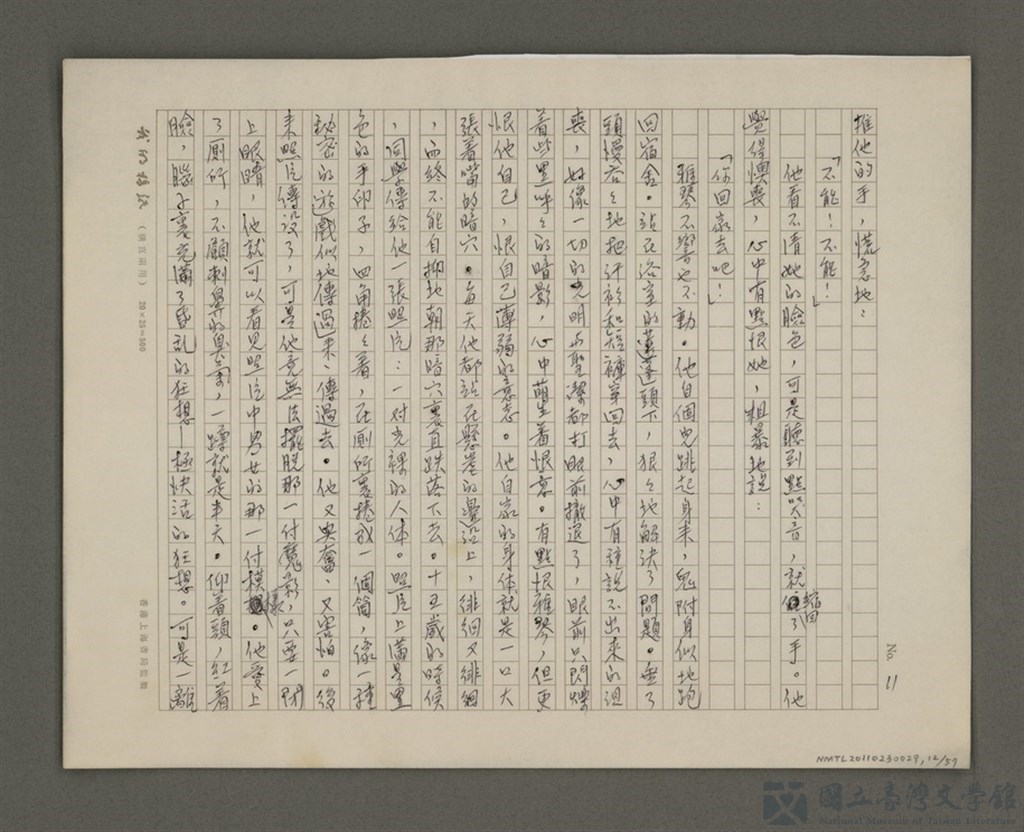 No. 11
推他的手，慌急地：
「不能！不能！」
他看不清她的臉色，可是聽到點哭音，就縮回了手。他
覺得懊喪，心中有點恨她，粗暴地說：
「你回家去吧！」
雅琴不響也不動。他自個兒跳起身來，鬼附身似地跑
回宿舍。站在浴室的蓮蓬頭下，狠々地解決了問題。垂了
頭慢吞々地把汗衫和短褲穿回去，心中有種說不出來的沮
喪，好像一切的光明与聖潔都打眼前撤退了，眼前只閃爍
着些黑呼々的暗影，心中萌生着恨意。有點恨雅琴，但更
恨他自己，恨自己薄弱的意志。他自家的身体就是一口大
張着嘴的暗穴。每天他都站在懸崖的邊沿上，徘徊又徘徊
，而終不能自抑地朝那暗穴裏直跌落下去。十五歲的時候
，同學傳給他一張照片：一对光裸的人体。照片上滿是黑
色的手印子，四角捲々着，在廁所裏捲成一個筒，像一種
秘密的遊戲似地傳過來、傳過去。他又興奮、又害怕。後
來照片傳沒了，可是他竟無法擺脫那一付魔影，只要一閉
上眼睛，他就可以看見照片中男女的那一付模樣。他愛上
了廁所，不顧刺鼻的臭氣，一蹲就是半天。仰着頭，紅着
臉，腦子裏充滿了昏乱的狂想—極快活的狂想。可是一離
（橫直兩用） 20×25=500
香港上海書局監製
NMTL20110230029, 12/57
國立臺灣文學館
National Museum of Taiwan Literature